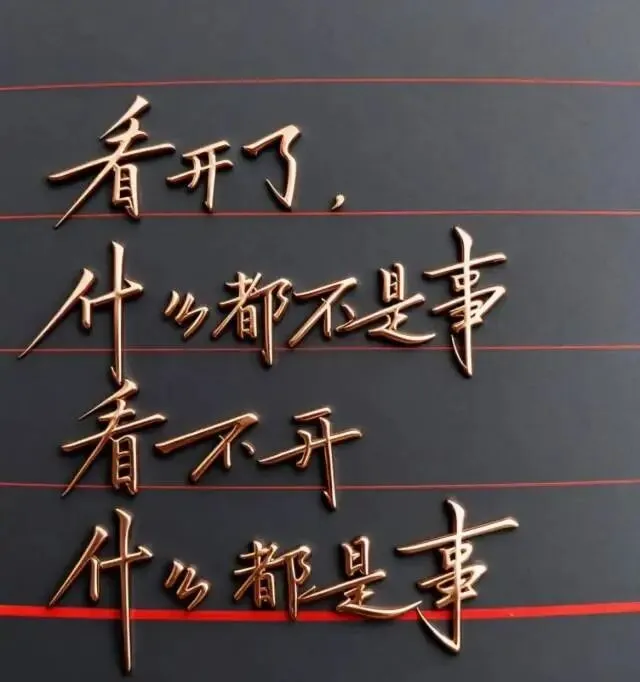 看开了，
什么都不是事
看不开
什么都是事